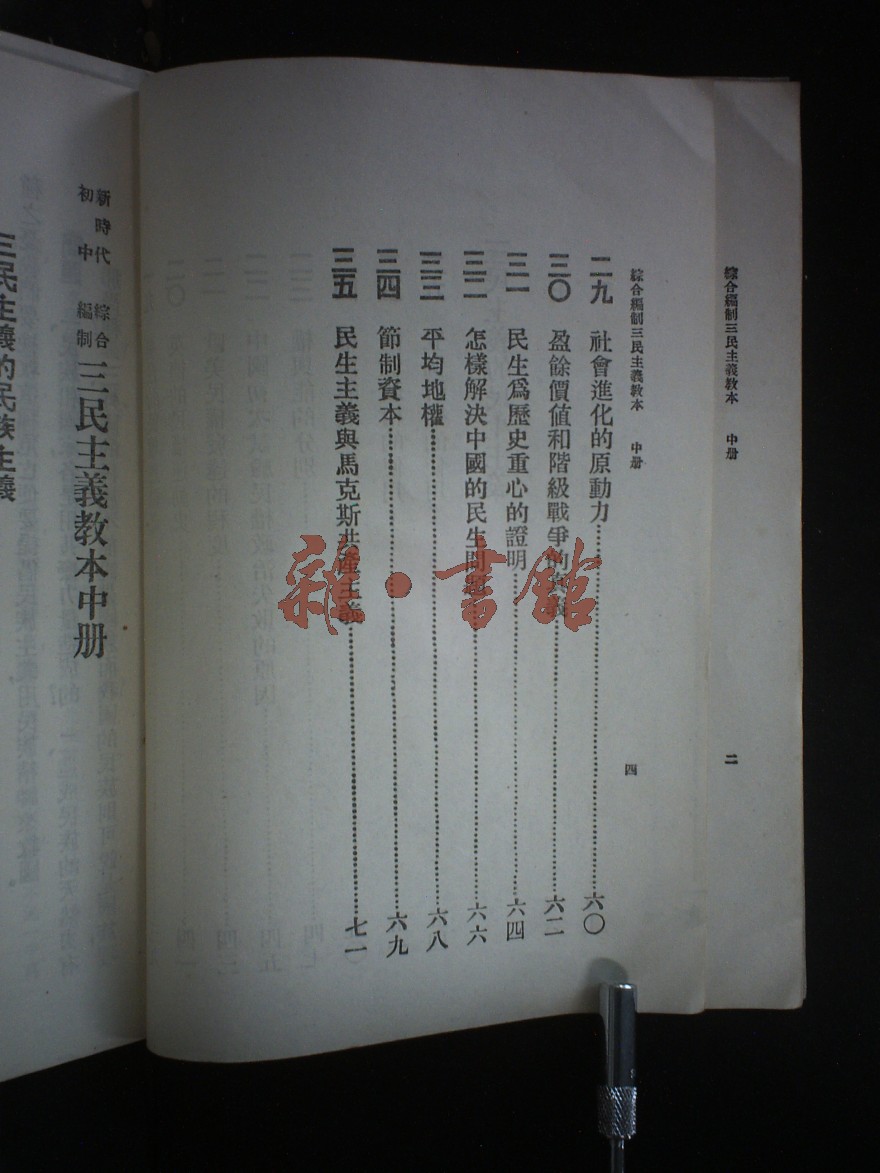 綜合編制三民主義教本 中册
二
綜合編制三民主義教本 中册
四
二九 社會進化的原動力……六〇
三〇 盈餘價值和階級戰爭的……六二
三一 民生爲歷史重心的證明……六四
三二 怎樣解決中國的民生問題……六六
三三 平均地權……六八
三四 節制資本……六九
三五 民生主義與馬克斯共產主義……七一
新時代初中 綜合編制 三民主義教本中册
三民主義的民族主義
雜·書館